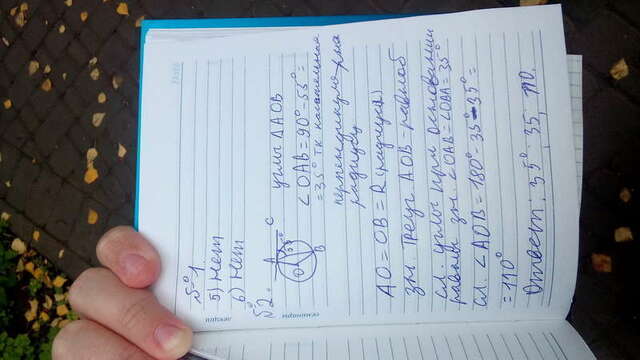 №1.
5) Нет
6) Нет
№2.
A C
O 55°
B
углы ΔAOB
∠OAB = 90° - 55° =
= 35° тк касательная
перпендикулярна
радиусу
AO = OB = R (радиус)
зн. треуг. AOB - равноб
сл. углы при основании
равны зн. ∠OAB = ∠OBA = 35°
сл. ∠AOB = 180° - 35° - 35° =
= 110°
Ответ: 35°; 35; 110.